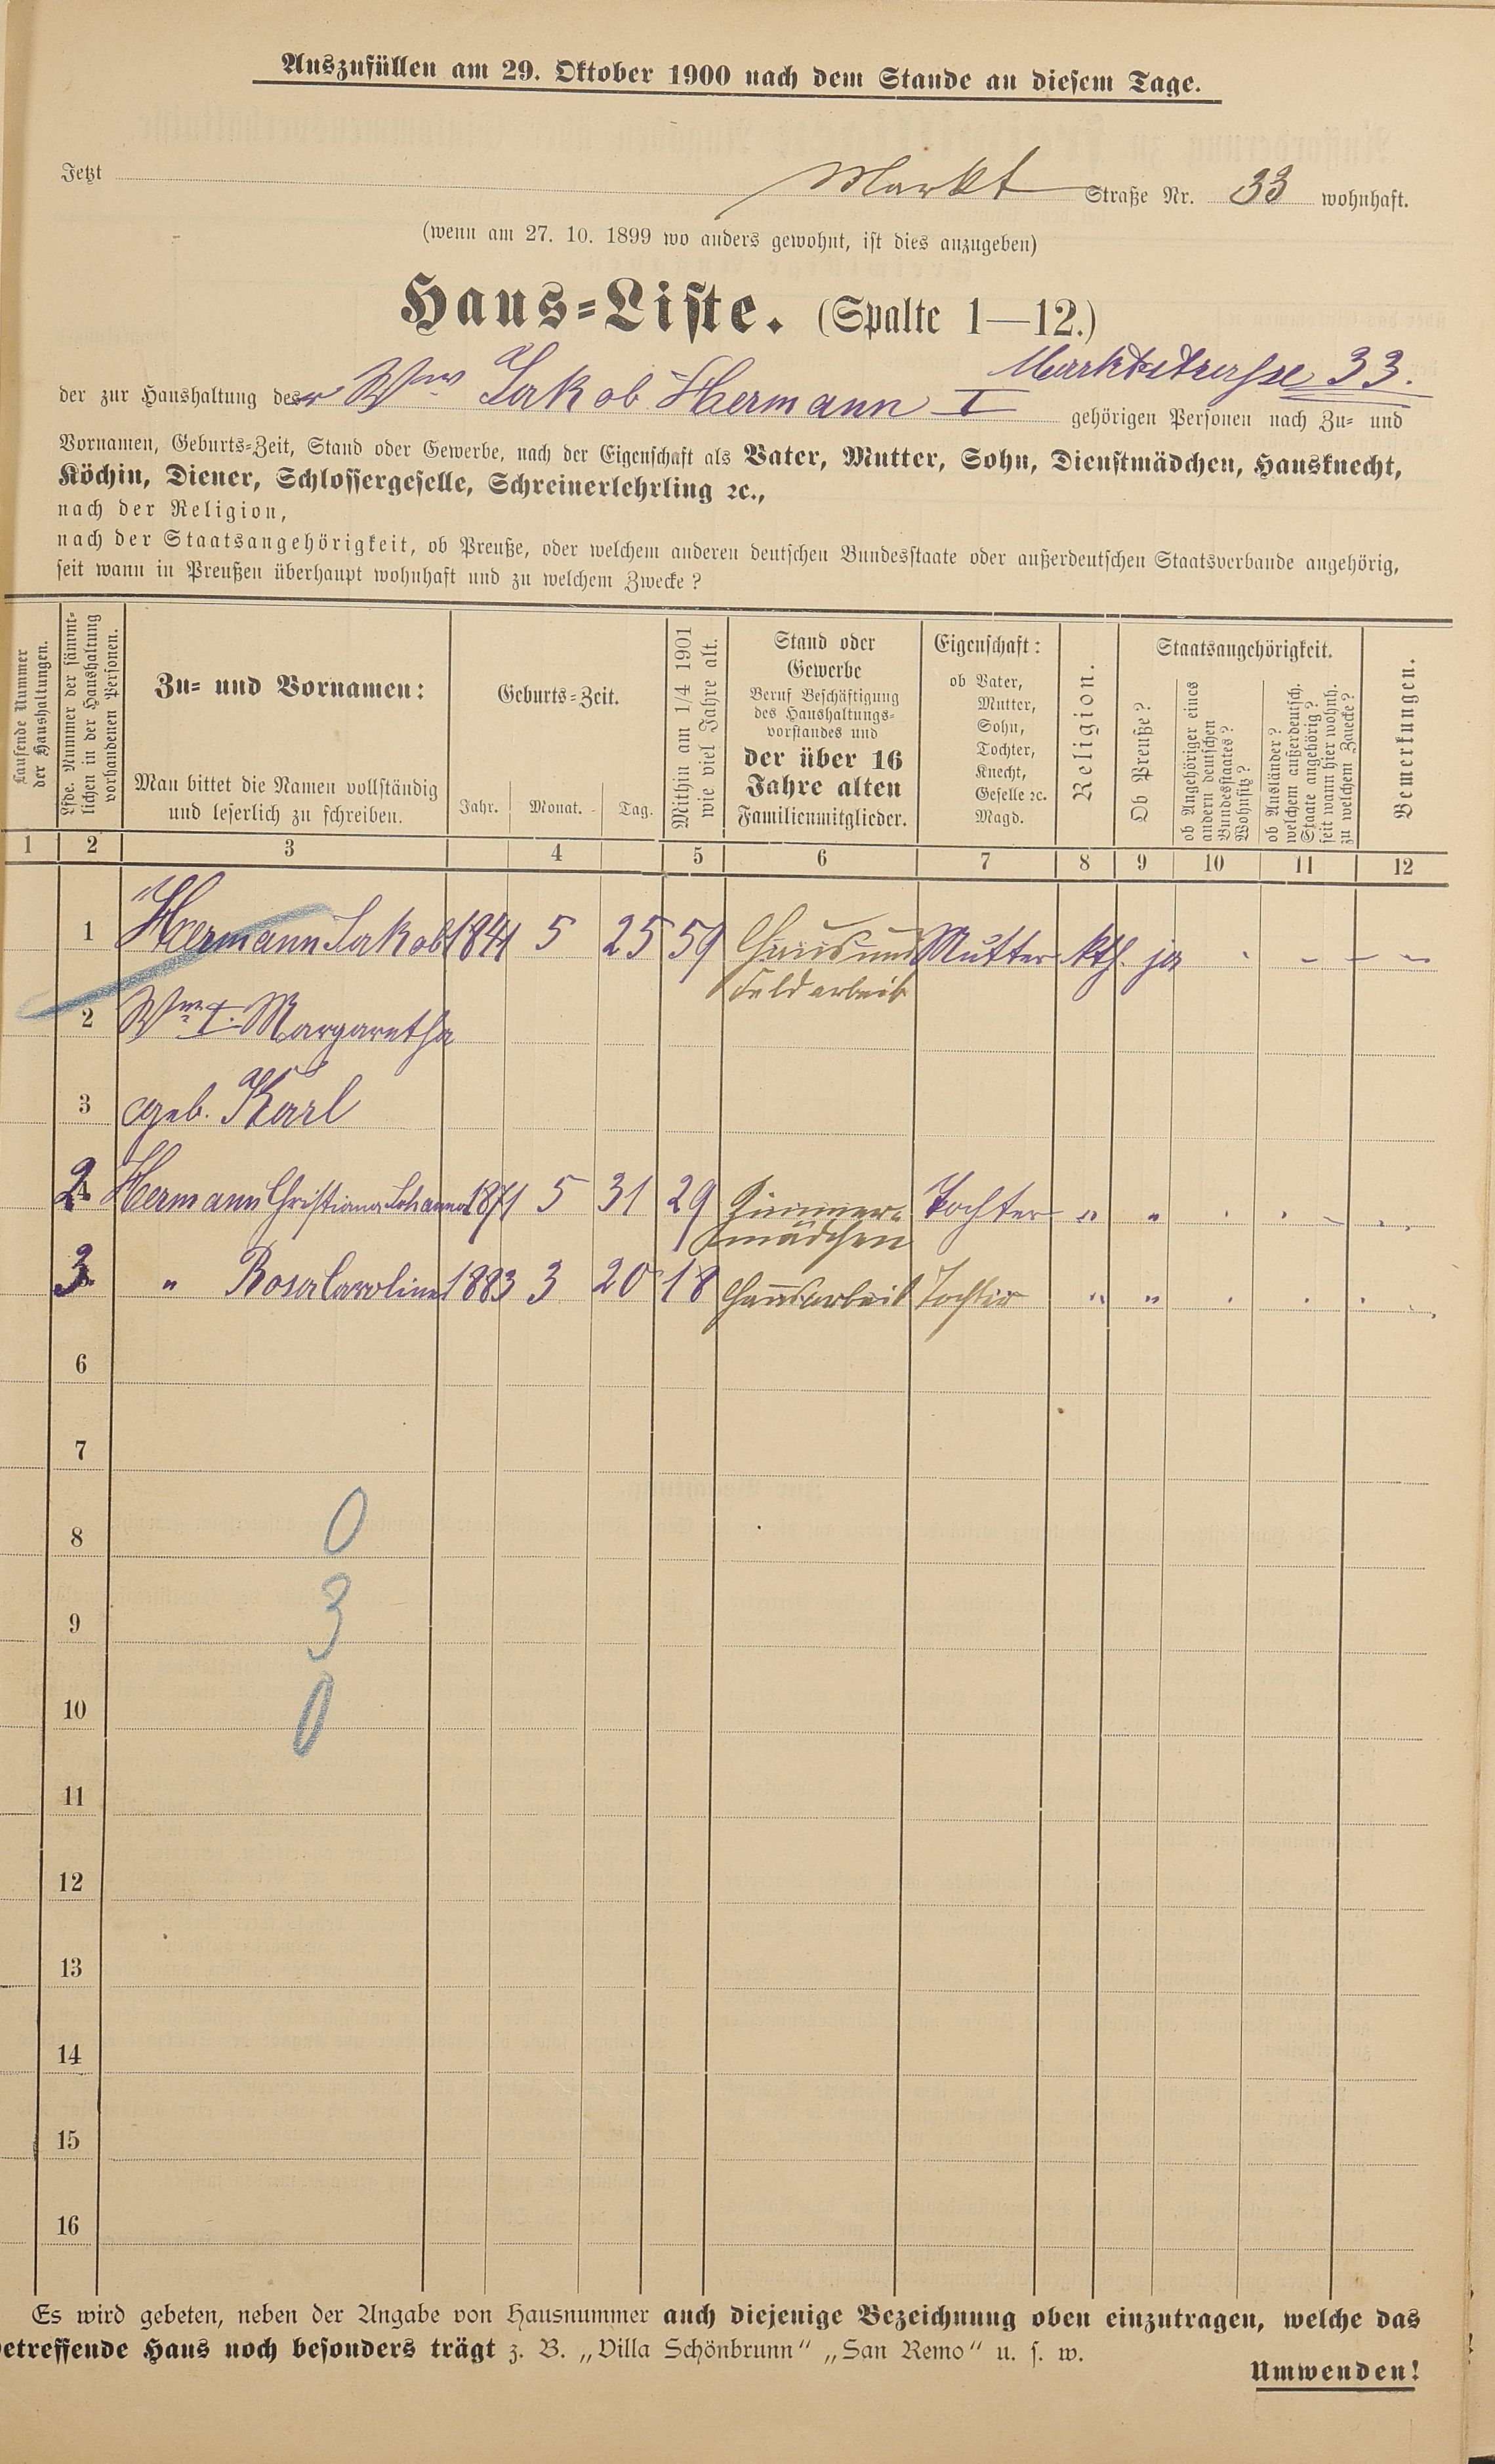 Auszufüllen am 29. Oktober 1900 nach dem Stande an diesem Tage.
Jetzt Markt Straße Nr. 33 wohnhaft.
(wenn am 27. 10. 1899 wo anders gewohnt, ist dies anzugeben)
Haus-Liste. (Spalte 1—12.)
Marktstrasse 33.
der zur Haushaltung der Wwe Jakob Hermann I gehörigen Personen nach Zu- und
Vornamen, Geburts-Zeit, Stand oder Gewerbe, nach der Eigenschaft als Vater, Mutter, Sohn, Dienstmädchen, Hausknecht,
Köchin, Diener, Schlossergeselle, Schreinerlehrling ꝛc.,
nach der Religion,
nach der Staatsangehörigkeit, ob Preuße, oder welchem anderen deutschen Bundesstaate oder außerdeutschen Staatsverbande angehörig,
seit wann in Preußen überhaupt wohnhaft und zu welchem Zwecke?
Laufende Nummer
der Haushaltungen.
Lfde. Nummer der sämmt-
lichen in der Haushaltung
vorhandenen Personen.
Zu- und Vornamen:
Man bittet die Namen vollständig
und leserlich zu schreiben.
Geburts-Zeit.
Jahr. Monat. Tag.
Mithin am 1/4 1901
wie viel Jahre alt.
Stand oder
Gewerbe
Beruf Beschäftigung
des Haushaltungs-
vorstandes und
der über 16
Jahre alten
Familienmitglieder.
Eigenschaft:
ob Vater,
Mutter,
Sohn,
Tochter,
Knecht,
Geselle ꝛc.
Magd.
Religion.
Staatsangehörigkeit.
Ob Preuße?
ob Angehöriger eines
andern deutschen
Bundesstaates?
Wohnsitz?
ob Ausländer?
welchem außerdeutsch.
Staate angehörig?
seit wann hier wohnh.
zu welchem Zwecke?
Bemerkungen.
1 2 3 4 5 6 7 8 9 10 11 12
1 Hermann Jakob 1841 5 25 59 Haus und Mutter kth. ja - - - -
Feldarbeit
2 Wwe I. Margaretha
3 geb. Karl
2 Hermann Christiana Johanna 1871 5 31 29 Zimmer- Tochter " "
mädchen
3 " Rosa Caroline 1883 3 20 18 Hausarbeit Tochter " "
6
7
8 0
9 3
10 0
11
12
13
14
15
16
Es wird gebeten, neben der Angabe von Hausnummer auch diejenige Bezeichnung oben einzutragen, welche das
betreffende Haus noch besonders trägt z. B. „Villa Schönbrunn" „San Remo" u. s. w.
Umwenden!